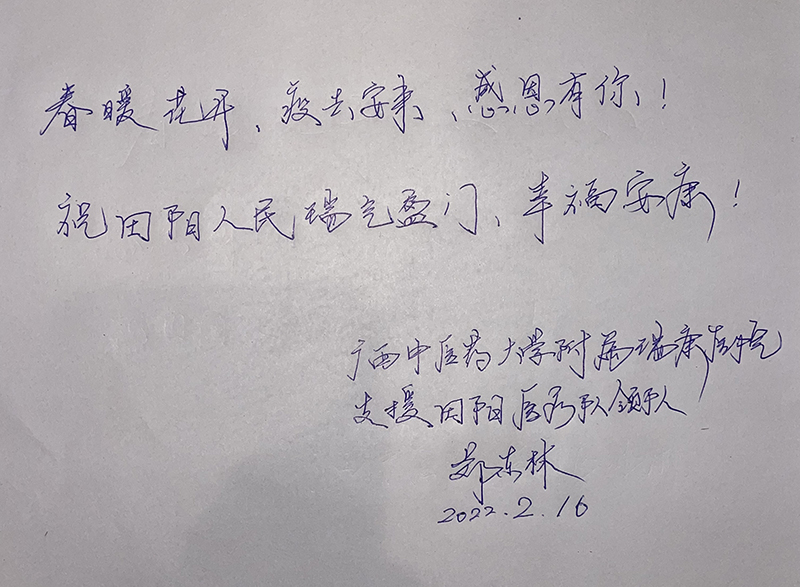 春暖花开、疫去安来、感恩有你！
祝田阳人民瑞气盈门、幸福安康！
广西中医药大学附属瑞康医院
支援田阳医疗队领队人
郑东林
2022.2.16